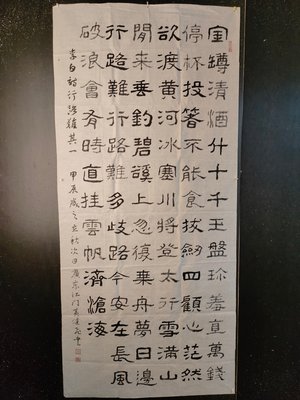 金罇清酒斗十千玉盤珍羞直萬錢
停杯投箸不能食拔劒四顧心茫然
欲渡黄河冰塞川將登太行雪滿山
閒来垂釣碧谿上忽復乗舟夢日邊
行路難行路難多歧路今安在長風
破浪會有時直挂雲帆濟滄海
李白詩行路難其一 甲辰歲之立秋次日廣東江门